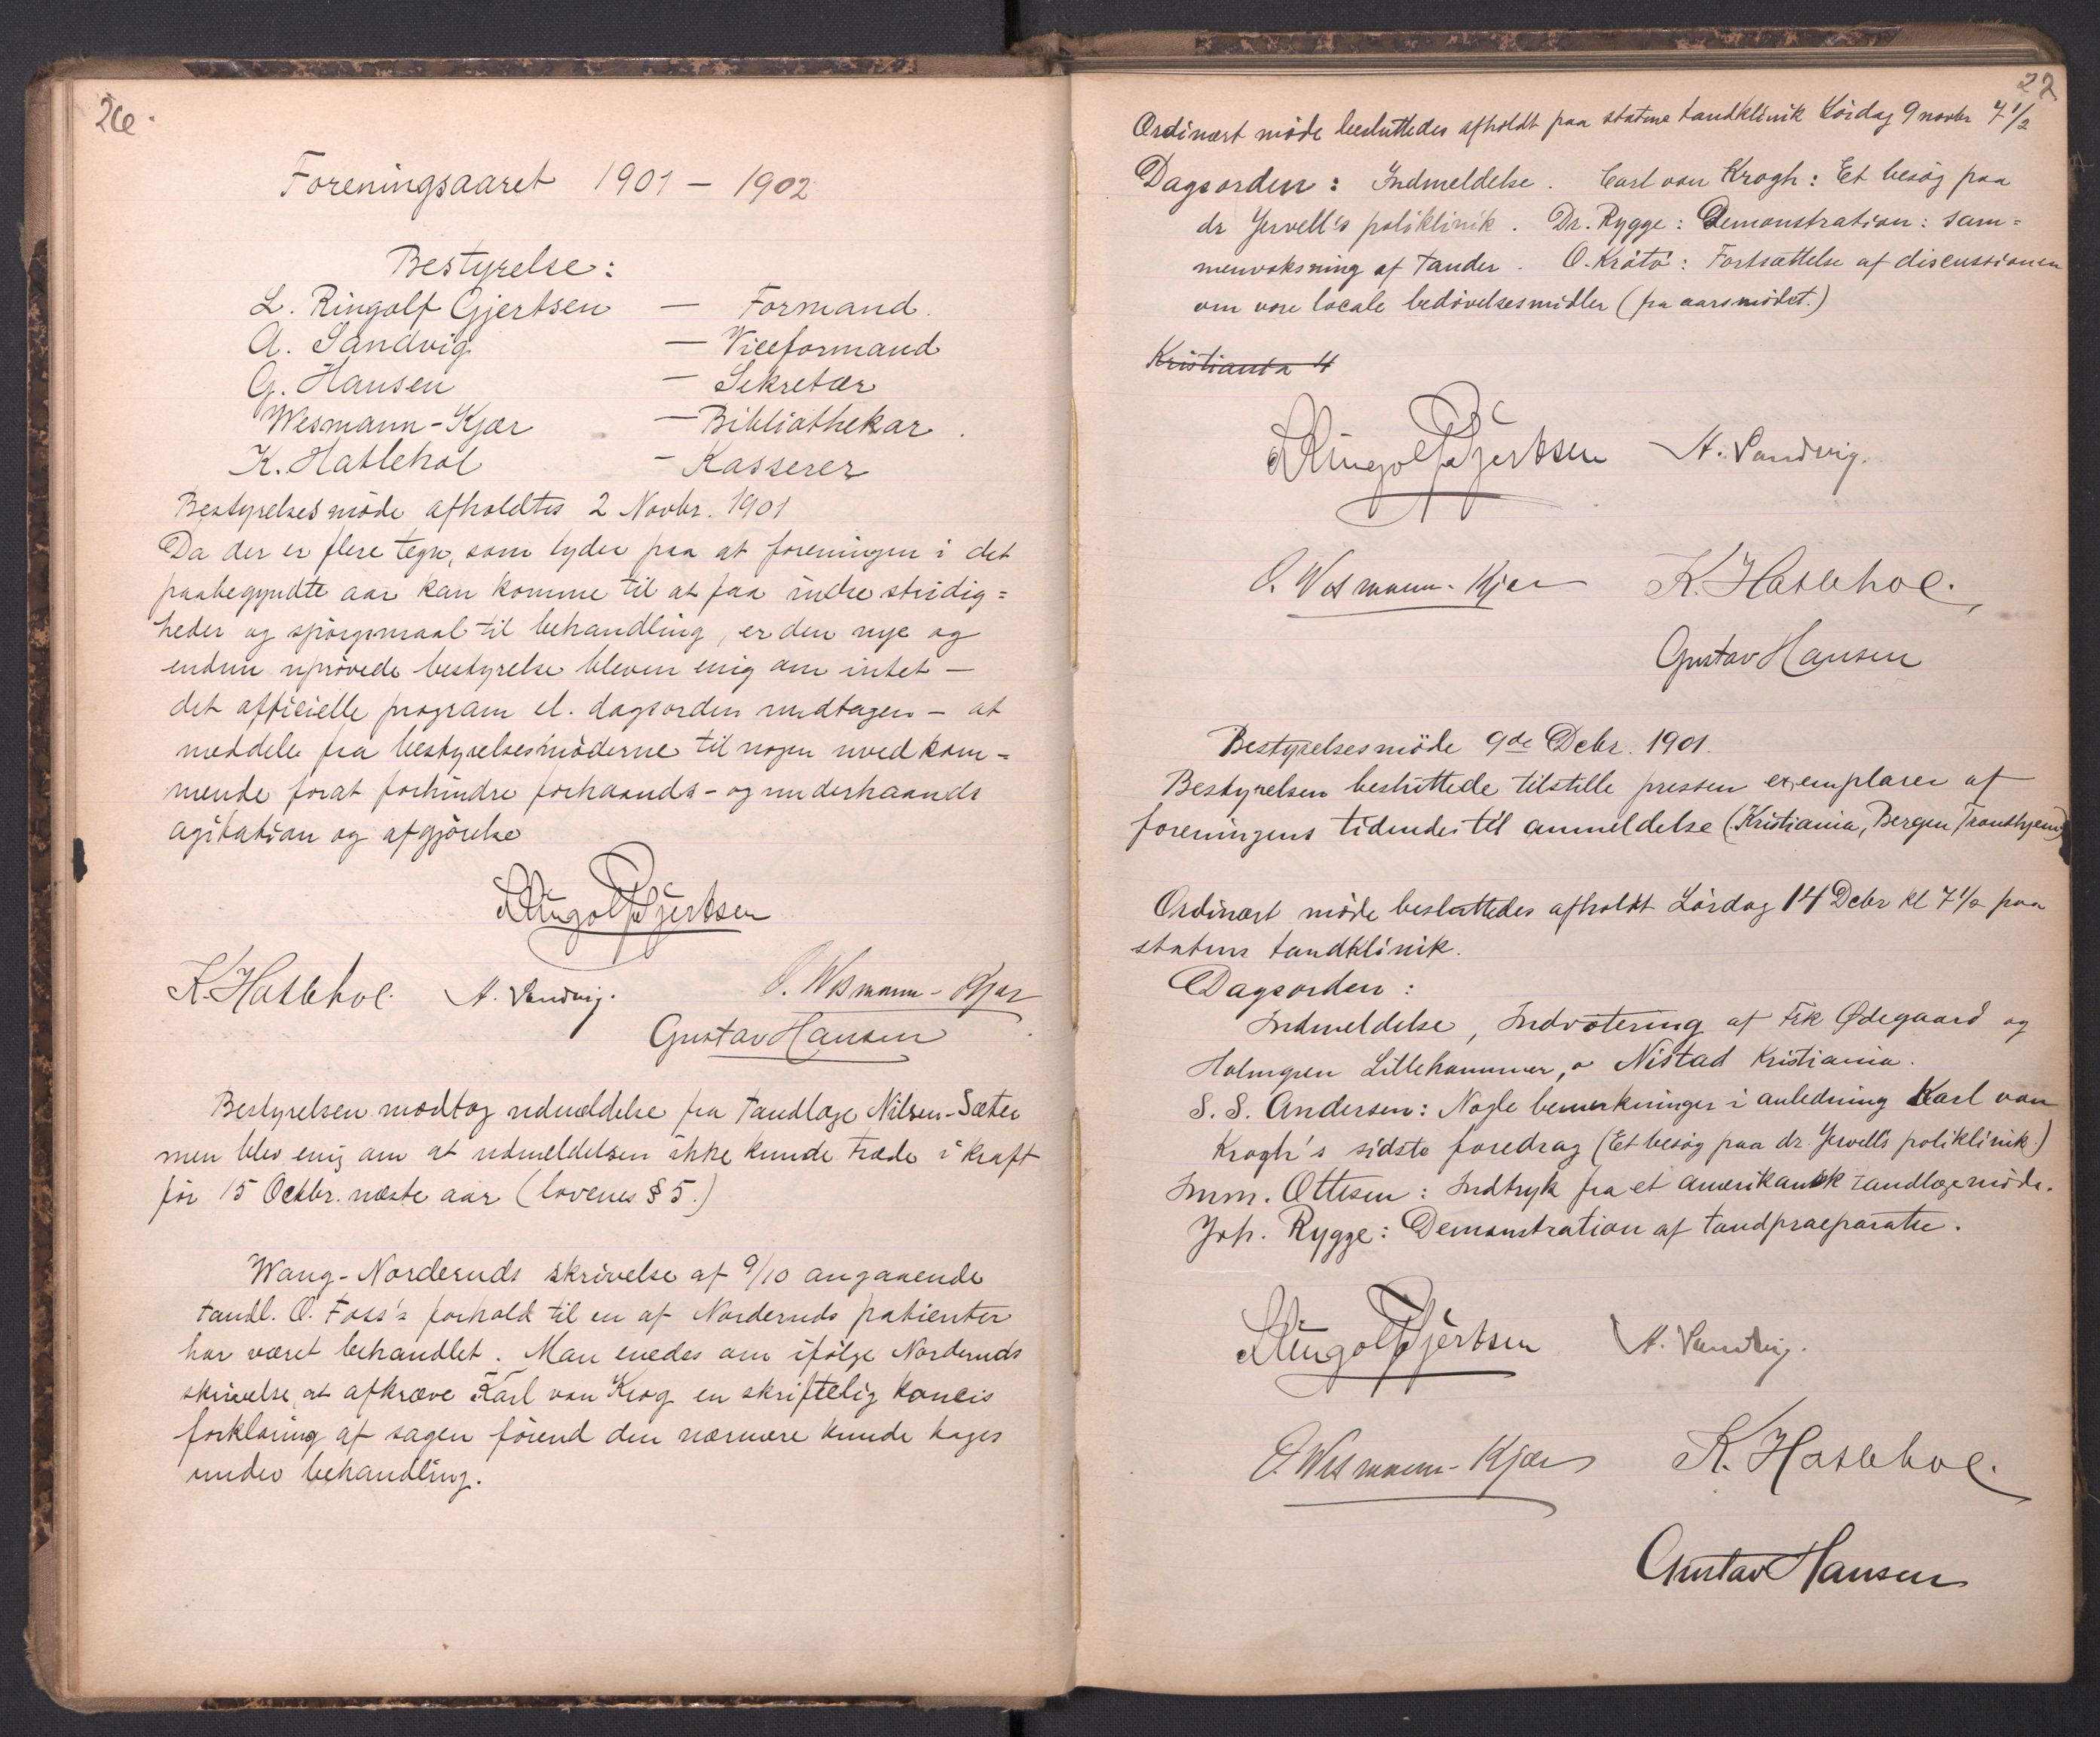 26.
Foreningsaaret 1901 – 1902
Bestyrelse:
L. Ringolf Gjertsen — Formand.
A. Sandvig — Viceformand
G. Hansen — Sekretær
Wesmann-Kjær — Bibliothekar.
K. Haslehol – Kasserer
Bestyrelsesmöde afholdtes 2 Novbr. 1901
Da der er flere tegn, som tyder paa at foreningen i det
paabegyndte aar kan komme til at faa indre stridig=
heder og spörgsmaal til behandling, er den nye og
endnu uprövede bestyrelse bleven enig om intet –
det officielle program el. dagsorden undtagen – at
meddele fra bestyrelsesmöderne til nogen uvedkom=
mende forat forhindre forhaands- og underhaands
agitation og afgjörelse
L Ringolf Gjertsen
K. Haslehol. A. Sandvig. O. Wesmann-Kjær
Gustav Hansen
Bestyrelsen modtog udmeldelse fra Tandlæge Nilsen-Sæter
men blev enig om at udmeldelsen ikke kunde træde i kraft
för 15 Octbr. næste aar (lovenes § 5.)
Wang-Norderuds skrivelse af 9/10 angaaende
tandl. O. Foss's forhold til en af Norderuds patienter
har været behandlet. Man enedes om ifölge Norderuds
skrivelse at afkræve Karl von Krog en skriftelig koncis
forklaring af sagen förend den nærmere kunde tages
under behandling.
22
Ordinært möde besluttedes afholdt paa statens tandklinik Lördag 9 novbr 7 1/2
Dagsorden: Indmeldelse. Carl von Krogh: Et besög paa
dr Jervell's poliklinik. Dr. Rygge: Demonstration: sam=
menvoksning af tænder. O. Krötö: Fortsættelse af discussionen
om vore locale bedövelsesmidler (fra aarsmödet.)
Kristiania 4
L Ringolf Gjertsen A. Sandvig.
O. Wesmann-Kjær K. Haslehol.
Gustav Hansen
Bestyrelsesmöde 9de Debr. 1901.
Bestyrelsen besluttede tilstille pressen exemplarer af
foreningens tidende til anmeldelse (Kristiania, Bergen Trondhjem)
Ordinært möde besluttedes afholdt Lördag 14 Debr kl 7 1/2 paa
statens tandklinik.
Dagsorden:
Indmeldelse, Indvotering af Frk Ødegaard og
Holmgren Lillehammer, o Nistad Kristiania.
S. S. Andersen: Nogle bemerkninger i anledning Karl von
Krogh's sidste foredrag (Et besög paa dr. Jervell's poliklinik.)
Imm. Ottesen: Indtryk fra et amerikansk tandlægemöde.
Joh. Rygge: Demonstration af tandpraeparater.
L Ringolf Gjertsen A. Sandvig.
O. Wesmann-Kjær K. Haslehol.
Gustav Hansen